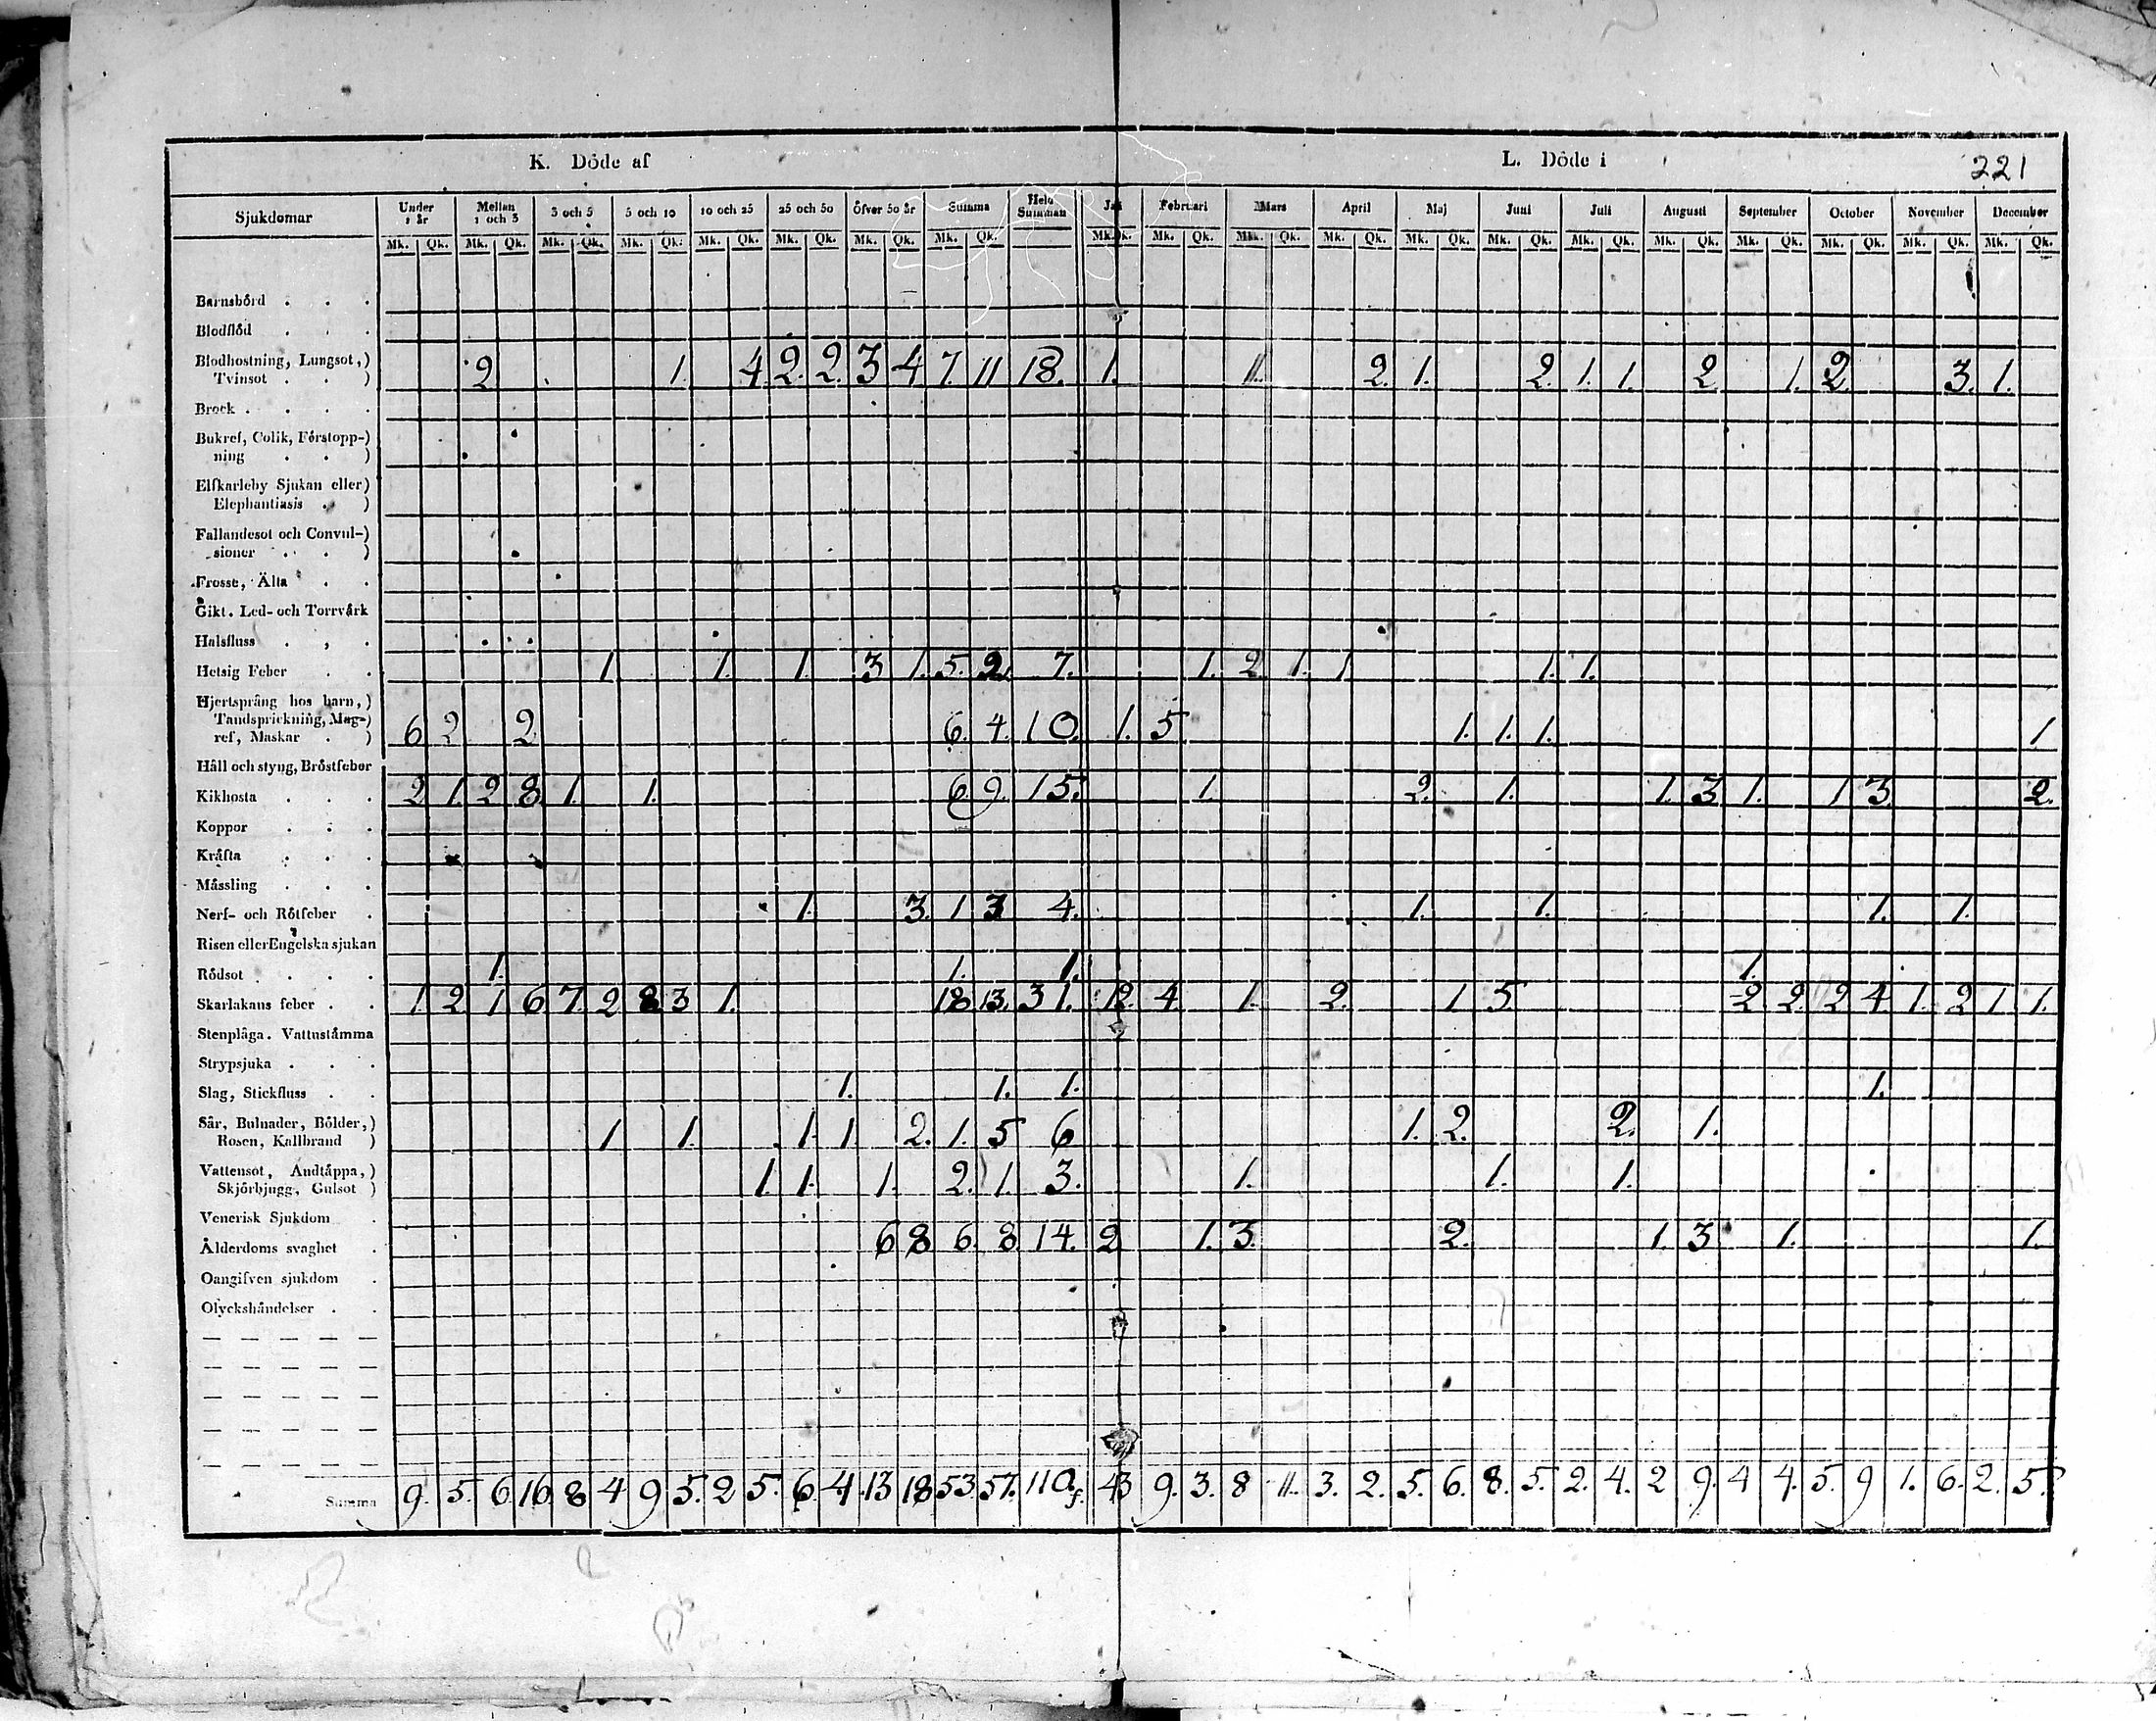 K. Döde af L. Döde i 221
Sjukdomar Under 1 år Mellan 1 och 3 3 och 5 5 och 10 10 och 25 25 och 50 Öfver 50 år Summa Hela Summan Jan Februari Mars April Maj Juni Juli Augusti September October November December
Mk. Qk. Mk. Qk. Mk. Qk. Mk. Qk. Mk. Qk. Mk. Qk. Mk. Qk. Mk. Qk. Mk. Qk. Mk. Qk. Mk. Qk. Mk. Qk. Mk. Qk. Mk. Qk. Mk. Qk. Mk. Qk. Mk. Qk. Mk. Qk. Mk. Qk. Mk. Qk.
Barnsbörd . . .
Blodflöd . . .
Blodhostning, Lungsot,)
Tvinsot . . ) 2 1. 4. 2. 2. 3 4 7. 11 18. 1. 11. 2. 1. 2. 1. 1. 2 1. 2. 3. 1.
Brock . . . .
Bukref, Colik, Förstopp-)
ning . . )
Elfkarleby Sjukan eller)
Elephantiasis . )
Fallandesot och Convul-)
sioner . . )
Frosse, Älta . .
Gikt. Led- och Torrvärk
Halsfluss . , .
Hetsig Feber . . 1 1. 1. 3 1. 5. 2. 7. 1. 2. 1. 1 1. 1.
Hjertsprång hos barn,)
Tandsprickning, Mag-)
ref, Maskar . ) 6 2 2 6. 4. 10. 1. 5 1. 1. 1. 1
Håll och styng, Bröstfeber
Kikhosta . . . 2 1. 2 8 1. 1. 6. 9. 15. 1. 2. 1. 1. 3 1. 1 3. 2.
Koppor . . .
Kräfta . . .
Mässling . . .
Nerf- och Rötfeber . 1. 3. 1 3 4. 1. 1. 1. 1.
Risen eller Engelska sjukan
Rödsot . . . 1. 1. 1. 1.
Skarlakans feber . . 1. 2 1 6 7. 2 8 3 1. 18 13. 31. 12 4. 1. 2. 1 5 2 2. 2 4 1. 2 1 1.
Stenplåga. Vattustämma
Strypsjuka . . .
Slag, Stickfluss . . 1. 1. 1. 1.
Sår, Bulnader, Bölder,)
Rosen, Kallbrand ) 1 1. 1. 1. 2. 1. 5 6 1. 2. 2. 1.
Vattensot, Andtäppa,)
Skjörbjugg, Gulsot ) 1. 1. 1. 2. 1. 3. 1. 1. 1.
Venerisk Sjukdom .
Ålderdoms svaghet . 6 8 6. 8 14. 2 1. 3. 2. 1. 3 1. 1.
Oangifven sjukdom .
Olyckshändelser . .
Summa 9. 5. 6. 16. 8 4 9 5. 2 5. 6. 4. 13 18 53. 57. 110 9. 3. 8 11. 3. 2. 5. 6. 8. 5. 2. 4. 2 9. 4 4. 5. 9 1. 6. 2. 5.